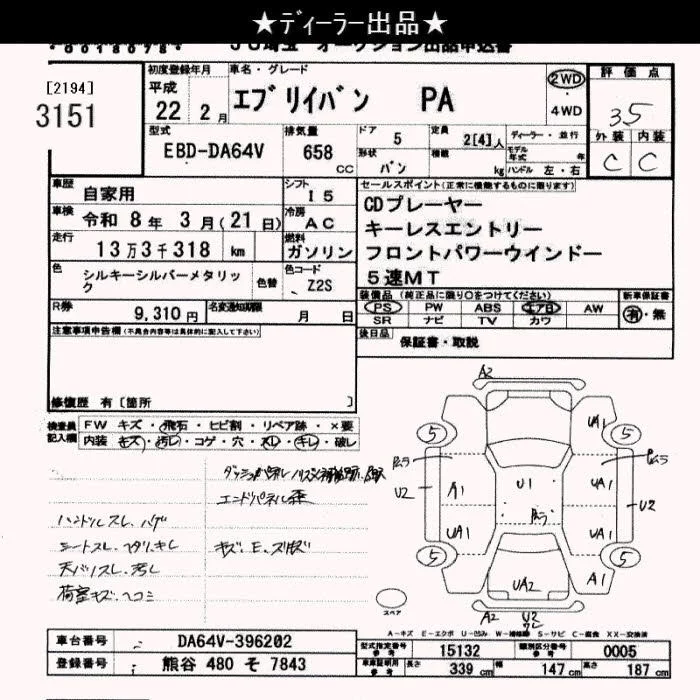 ★ディーラー出品★
JU埼玉 オークション出品申込書
[2194]
3151
初度登録年月
平成
22 2月
車名・グレード
エブリイバン PA
2WD
・
4WD
評価点
3.5
外装 内装
C C
型式
EBD-DA64V
排気量
658 CC
ドア 5
定員 2[4]人
形状 バン
積載 kg
ディーラー・並行
モデル年式 年
ハンドル 左・右
車歴 自家用
シフト I5
車検 令和 8年 3月(21日)
冷房 AC
走行 13万3千318 km
燃料 ガソリン
色 シルキーシルバーメタリック
色替
色コード Z2S
R券 9,310円
名変通知期限 月 日
セールスポイント(正常に機能するものに限ります)
CDプレーヤー
キーレスエントリー
フロントパワーウインドー
5速MT
装備品(純正品に限り○をつけてください)
PS PW ABS エアB AW
SR ナビ TV カワ
新車保証書
有・無
後日品 保証書・取説
注意事項申告欄(不具合内容等は具体的に記入して下さい)
修復歴 有[箇所 ]
検査員記入欄
FW キズ・飛石・ヒビ割・リペア跡・×要
内装 キズ・汚レ・コゲ・穴・スレ・キレ・破レ
エンドパネル歪
ハンドルスレ、ハゲ
キズ、E、スリキズ
シートスレ、ヘタリ、キレ
天バリスレ、汚レ
荷室キズ、ヘコミ
A2
UA1
5 5
U2 A1 U1 UA1 U2
UA1 UA1
5 5
A1
UA2
スペア
A2 U2
A-キズ E-エクボ U-凹み W-補修跡 S-サビ C-腐食 XX-交換済
車台番号 DA64V-396202
登録番号 熊谷 480 そ 7843
型式指定番号 参考 15132
類別区分番号 参考 0005
車庫証明用 参考 長さ 339cm 幅 147cm 高さ 187cm